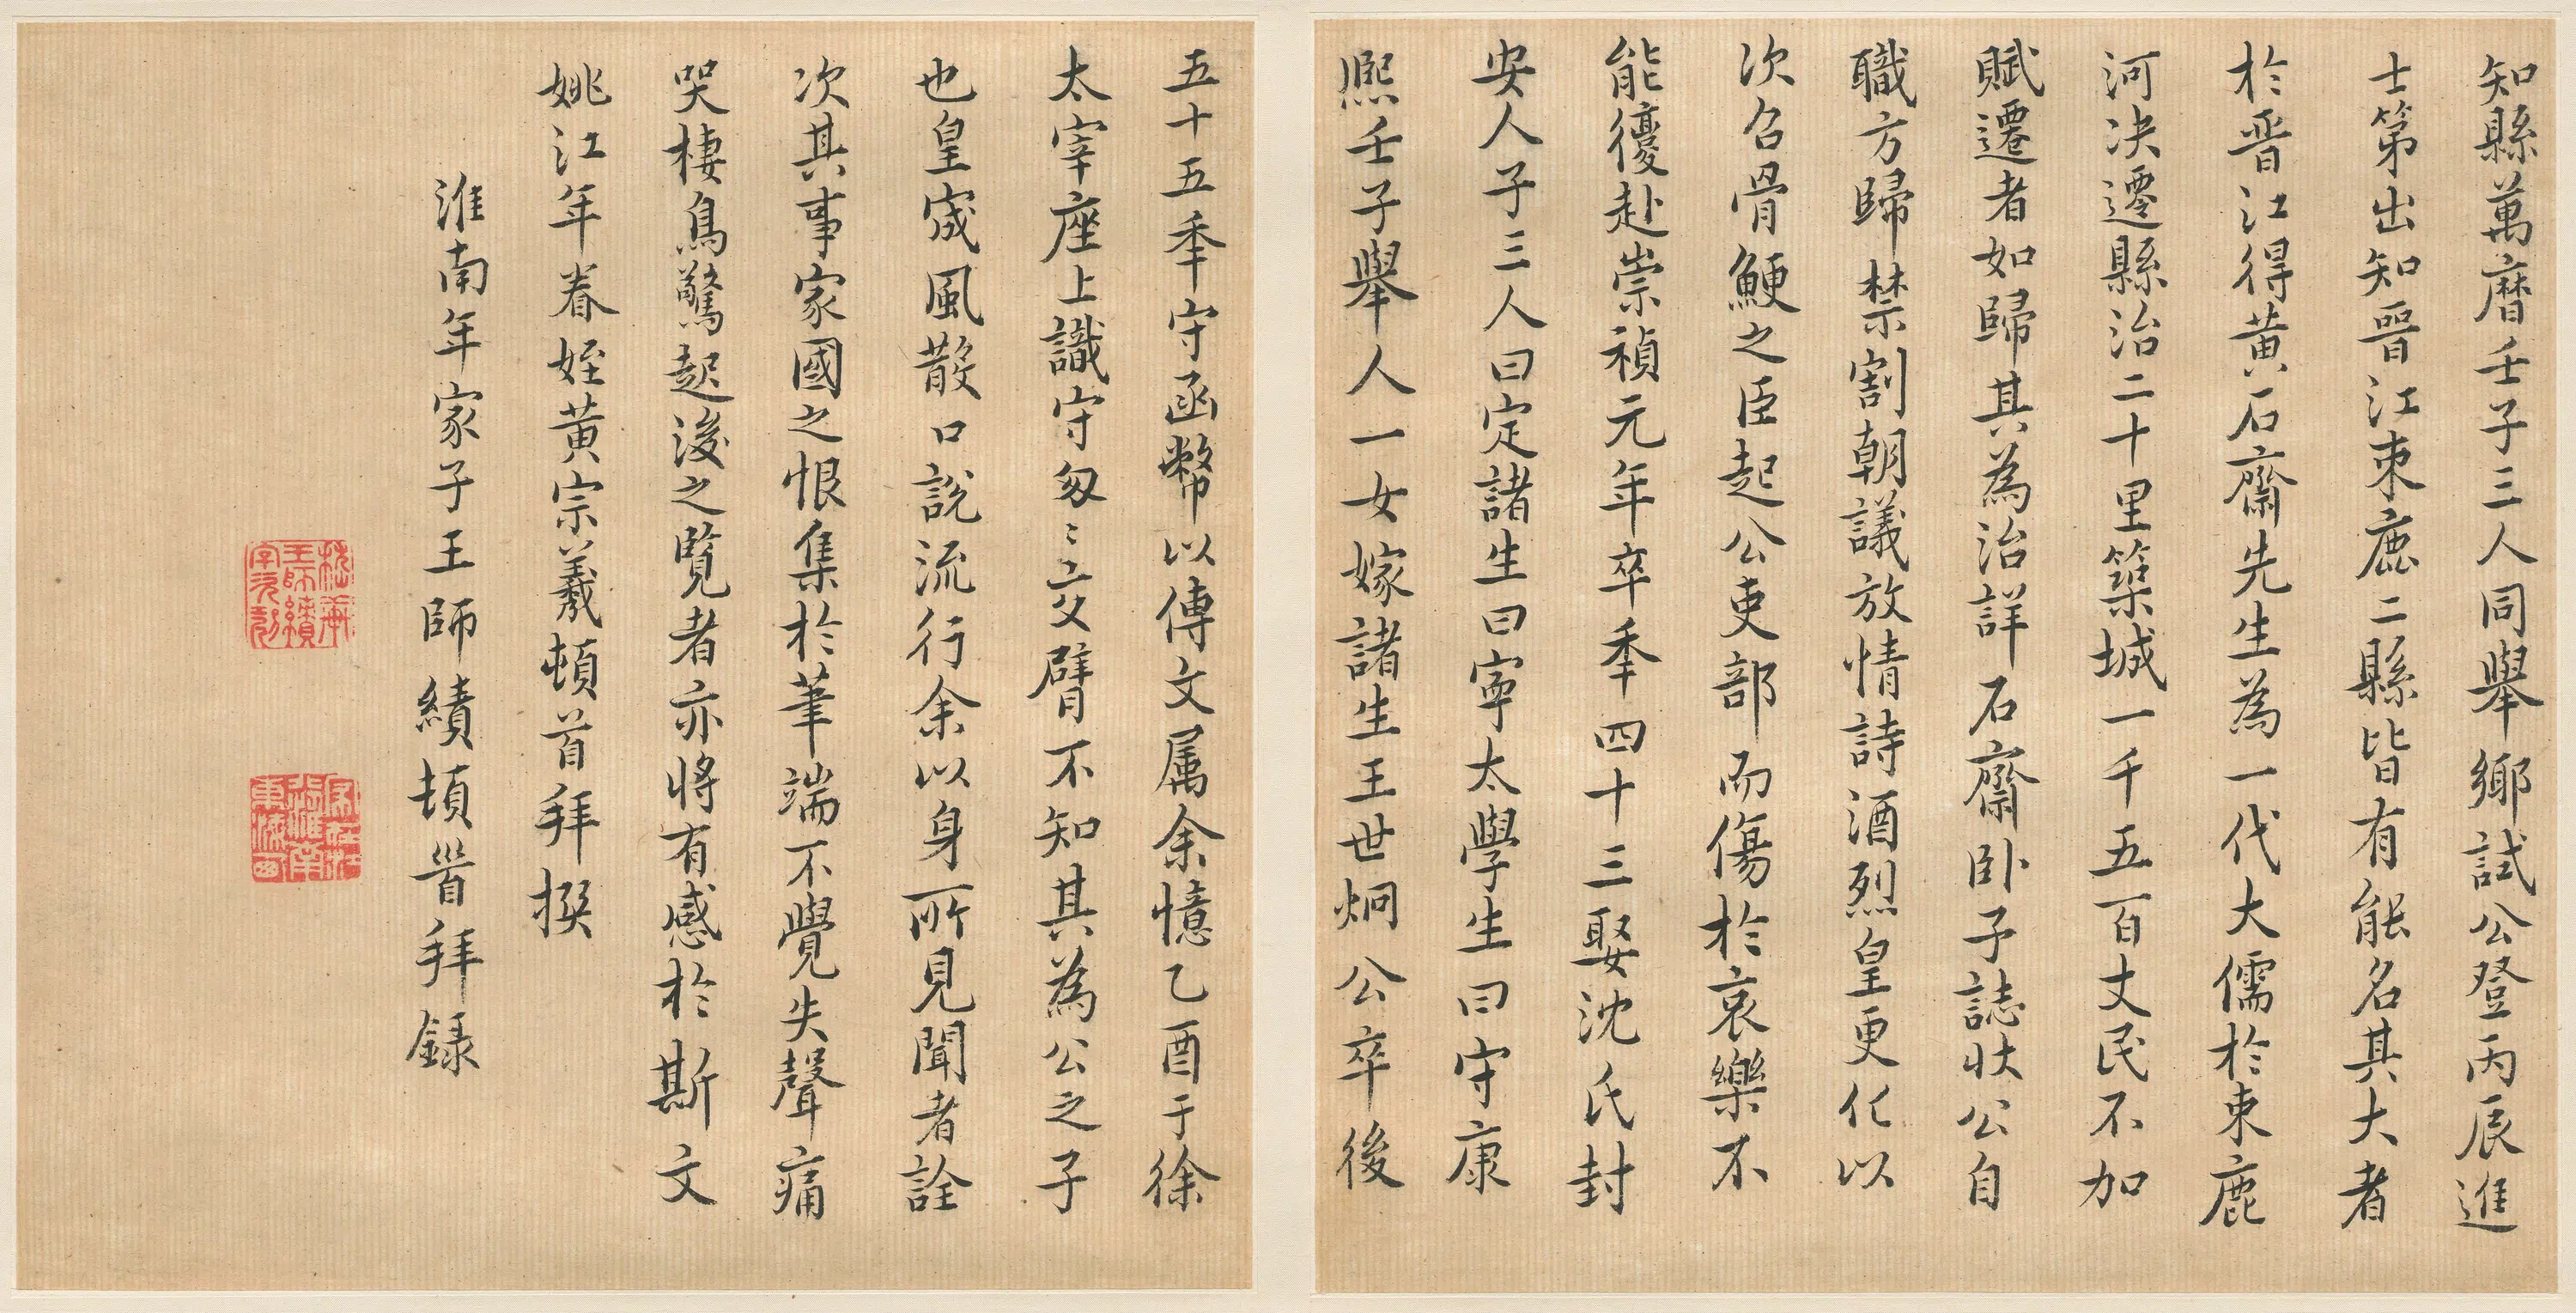 知縣萬曆壬子三人同舉鄉試公登丙辰進
士第出知晉江束鹿二縣皆有能名其大者
於晉江得黃石齋先生為一代大儒於束鹿
河決遷縣治二十里築城一千五百丈民不加
賦遷者如歸其為治詳石齋卧子誌狀公自
職方歸禁割朝議放情詩酒烈皇更化以
次召骨鯁之臣起公吏部而傷於哀樂不
能復赴崇禎元年卒年四十三娶沈氏封
安人子三人曰定諸生曰寧太學生曰守康
熙壬子舉人一女嫁諸生王世炯公卒後
五十五年守函幣以傳文属余憶乙酉于徐
太宰座上識守匆〻交臂不知其為公之子
也皇宬風散口說流行余以身所見聞者詮
次其事家國之恨集於筆端不覺失聲痛
哭棲鳥驚起後之覽者亦將有感於斯文
姚江年眷姪黃宗羲頓首拜撰
淮南年家子王師績頓首拜錄